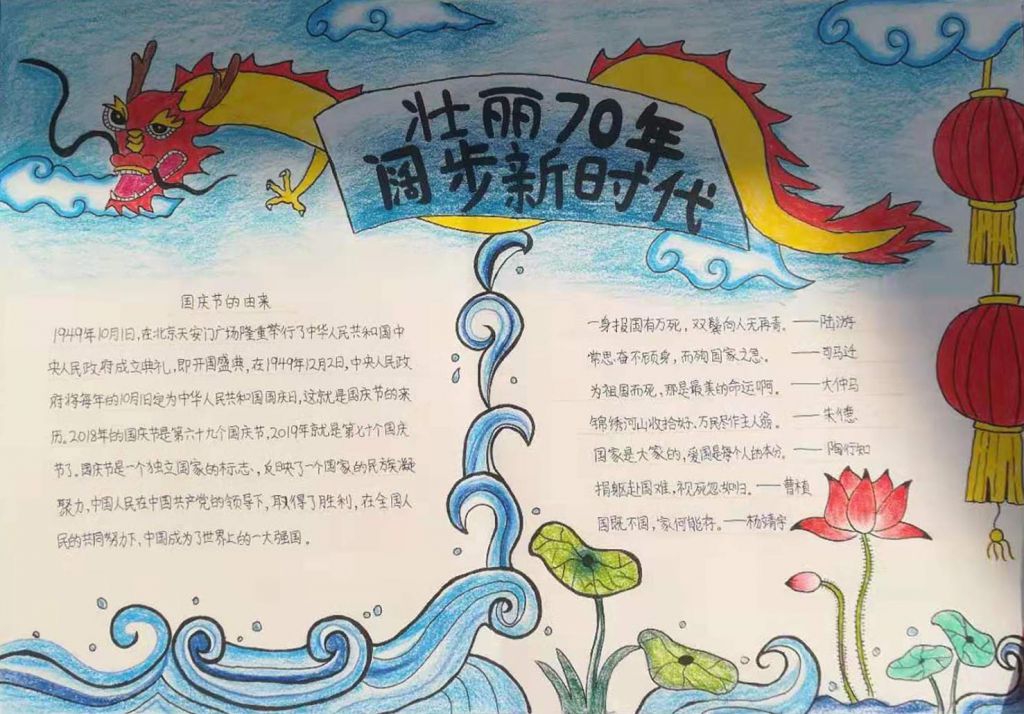 壮丽70年
阔步新时代
国庆节的由来
1949年10月1日,在北京天安门广场隆重举行了中华人民共和国中
央人民政府成立典礼,即开国盛典,在1949年12月2日,中央人民政
府将每年的10月1日定为中华人民共和国国庆日,这就是国庆节的来
历。2018年的国庆节是第六十九个国庆节,2019年就是第七十个国庆
节了。国庆节是一个独立国家的标志,反映了一个国家的民族凝
聚力,中国人民在中国共产党的领导下,取得了胜利,在全国人
民的共同努力下,中国成为了世界上的一大强国。
一身报国有万死,双鬓向人无再青。——陆游
常思奋不顾身,而殉国家之急。——司马迁
为祖国而死,那是最美的命运啊。——大仲马
锦绣河山收拾好,万民尽作主人翁。——朱德
国家是大家的,爱国是每个人的本分。——陶行知
捐躯赴国难,视死忽如归。——曹植
国既不国,家何能存。——杨靖宇